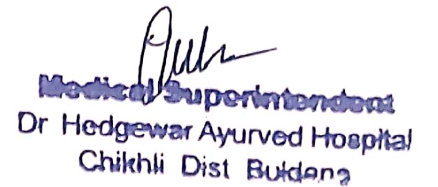 Medical Superintendent
Dr Hedgewar Ayurved Hospital
Chikhli Dist Buldana